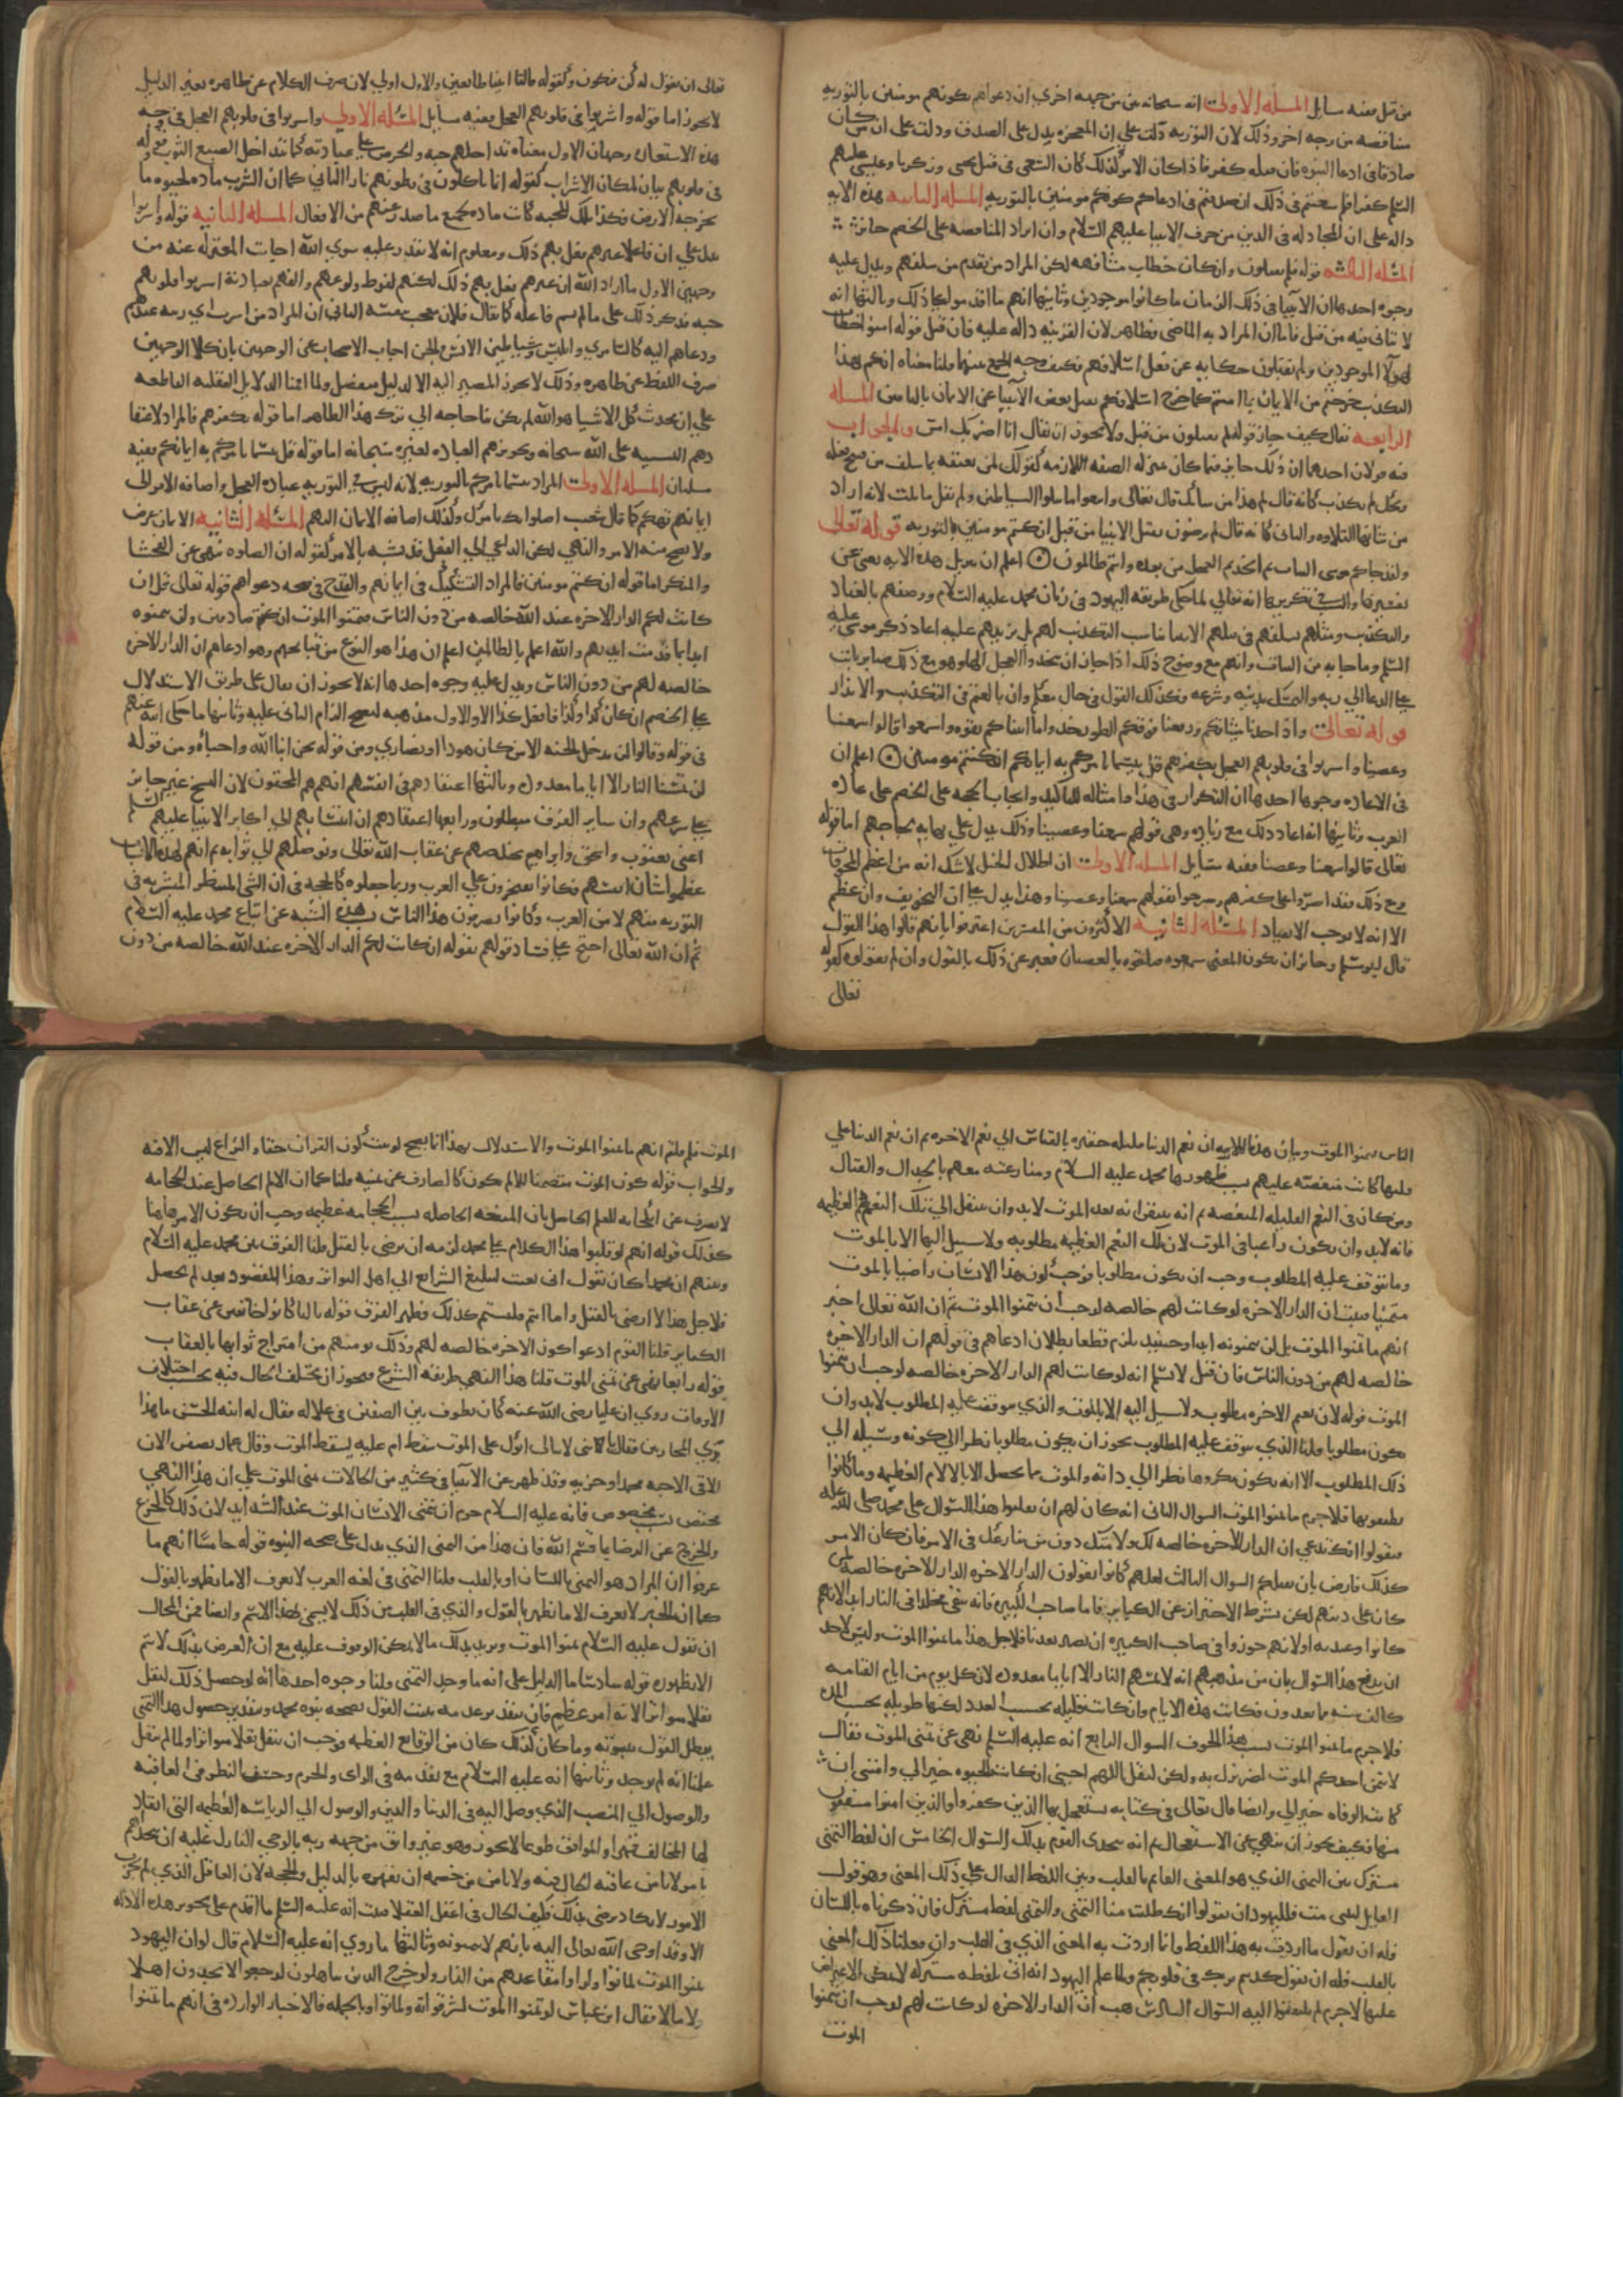 من قبل ففيه مسايل المسله الاولى انه سبحانه بين من جهه اخرى ان دعواهم بكونهم مومنين بالتوريه
مناقضه من وجه اخر وذلك لان التوريه دلت على ان المعجزه يدل على الصدق ودلت على ان من كان
صادقا في ادعا النبوه فان قتله كفر فاذا كان الامر كذلك كان السعى فى قتل يحيى وزكريا وعيسى عليهم
السلم كفرا فلم سعيتم فى ذلك ان صدقتم فى ادعاكم كونكم مومنين بالتوريه المسله الثانيه هذه الايه
داله على ان المجادله فى الدين من حرف الانبيا عليهم السلام وان ايراد المناقضه على الخصم جايز
المسله الثالثه قوله فلم تقتلون وان كان خطاب مشافهه لكن المراد من تقدم من سلفهم ويدل عليه
وجوه احدها ان الانبيا فى ذلك الزمان ما كانوا موجودين وثانيها انهم ما اقدموا على ذلك وثالثها انه
لا يتاتى فيه من قبل فاما ان المراد به الماضى فظاهر لان القرينه داله عليه فان قيل قوله امنوا خطاب
لهولا الموجودين ولم تقتلون حكايه عن فعل اسلافهم فكيف وجه الجمع بينهما قلنا معناه انكم بهذا
التكذيب خرجتم من الايمان بما امنتم كما خرج اسلافكم بقتل بعض الانبيا عن الايمان بالباقين المسله
الرابعه يقال كيف جاز قوله فلم تقتلون من قبل ولا يجوز ان يقال انا اضربك امس والجواب
فيه قولان احدهما ان ذلك جايز فيما كان بمنزله الصفه اللازمه كقولك لمن تعنفه بما سلف من قبح فعله
ويحك لم تكذب كانه قال لم هذا من شانك قال تعالى واتبعوا ما تتلوا الشياطين ولم يقل ما تلت لانه اراد
من شانها التلاوه والثانى كانه قال لم ترضون بقتل الانبيا من قبل ان كنتم مومنين بالتوريه قوله تعالى
ولقد جاكم موسى بالبينات ثم اتخذتم العجل من بعده وانتم ظالمون اعلم ان تكرير هذه الايه يغنى عن
تفسيرها والسبب فى تكريرها انه تعالى لما حكى طريقه اليهود فى زمان محمد عليه السلام ووصفهم بالعناد
والتكذيب ومثلهم بسلفهم فى قتلهم الانبيا الذى يناسب التكذيب لهم بل يزيدهم عليه اعاد ذكر موسى عليه
السلم وما جا به من البينات وانهم مع وضوح ذلك اجازوا ان يتخذوا العجل الها وهو مع ذلك صابر ثابت
على الدعا الى ربه والتمسك بدينه وشرعه فكذلك القول فى حالى معكم وان بالغتم فى التكذيب والانكار
قوله تعالى واذ اخذنا ميثاقكم ورفعنا فوقكم الطور خذوا ما اتيناكم بقوه واسمعوا قالوا سمعنا
وعصينا واشربوا فى قلوبهم العجل بكفرهم قل بيسما يامركم به ايمانكم ان كنتم مومنين اعلم ان
فى الاعاده وجوها احدها ان التكرار فى هذا وامثاله للتاكيد وايجاب الحجه على الخصم على عاده
العرب وثانيها انه اعاد ذلك مع زياده وهى قولهم سمعنا وعصينا وذلك يدل على نهايه لجاجهم اما قوله
تعالى قالوا سمعنا وعصينا ففيه مسايل المسله الاولى ان اظلال الجبل لا شك انه من اعظم المخوفات
ومع ذلك فقد اصروا على كفرهم وصرحوا بقولهم سمعنا وعصينا وهذا يدل على ان التخويف وان عظم
الا انه لا يوجب الانقياد المسله الثانيه الاكثرون من المفسرين اعترفوا بانهم قالوا هذا القول
قال ابو مسلم وجايز ان يكون المعنى سمعوه فتلقوه بالعصيان فعبر عن ذلك بالقول وان لم يقولوه كقوله
تعالى
تعالى ان نقول له كن فيكون وكقوله قالتا اتينا طايعين والاول اولى لان صرف الكلام عن ظاهره بغير الدليل
لا يجوز اما قوله واشربوا فى قلوبهم العجل ففيه مسايل المسله الاولى واشربوا فى قلوبهم العجل فى وجه
هذه الاستعاره وجهان الاول معناه تداخلهم حبه والحرص على عبادته كما يتداخل الصبغ الثوب وقوله
فى قلوبهم بيان لمكان الاشراب كقوله انما ياكلون فى بطونهم نارا الثانى كما ان الشرب ماده لحيوه ما
تخرجه الارض فكذا تلك المحبه كانت ماده لجميع ما صدر عنهم من الافعال المسله الثانيه قوله واشربوا
يدل على ان فاعلا غيرهم فعل بهم ذلك ومعلوم انه لا يقدر عليه سوى الله اجابت المعتزله عنه من
وجهين الاول ما اراد الله ان غيرهم فعل بهم ذلك لكنهم لفرط ولوعهم والفهم بعبادته اشربوا قلوبهم
حبه فذكر ذلك على ما لم يسم فاعله كما يقال فلان معجب بنفسه الثانى ان المراد من اشرب اى زينه عندهم
ودعاهم اليه كالسامرى وابليس وشياطين الانس والجن اجاب الاصحاب عن الوجهين بان كلا الوجهين
صرف اللفظ عن ظاهره وذلك لا يجوز المصير اليه الا لدليل منفصل ولما اقمنا الدلايل العقليه القاطعه
على ان محدث كل الاشيا هو الله لم يكن بنا حاجه الى ترك هذا الظاهر اما قوله بكفرهم فالمراد لاعتقا
دهم التشبيه على الله سبحانه وتجويزهم العباده لغيره سبحانه اما قوله قل بيسما يامركم به ايمانكم ففيه
مسلتان المسله الاولى المراد بيسما يامركم بالتوريه لانه ليس فى التوريه عباده العجل واضافه الامر الى
ايمانهم تهكم كما قال قوم شعيب اصلواتك تامرك وكذلك اضافه الايمان اليهم المسله الثانيه الايمان عرض
ولا يصح منه الامر والنهى لكن الداعى الى الفعل قد يشبه بالامر كقوله ان الصلوه تنهى عن الفحشا
والمنكر اما قوله ان كنتم مومنين فالمراد التشكيك فى ايمانهم والقدح فى صحه دعواهم قوله تعالى قل ان
كانت لكم الدار الاخره عند الله خالصه من دون الناس فتمنوا الموت ان كنتم صادقين ولن يتمنوه
ابدا بما قدمت ايديهم والله اعلم بالظالمين اعلم ان هذا هو النوع من قبايحهم وهو ادعاهم ان الدار الاخره
خالصه لهم من دون الناس ويدل عليه وجوه احدها انه لا يجوز ان يقال على طريق الاستدلال
على الخصم ان كان كذا وكذا فافعل كذا الا والاول مذهبه ليصح الزام الثانى عليه وثانيها ما حكى الله عنهم
فى قوله وقالوا لن يدخل الجنه الا من كان هودا او نصارى ومن قوله نحن ابنا الله واحباوه ومن قوله
لن تمسنا النار الا اياما معدوده وثالثها اعتقادهم فى انفسهم انهم هم المحقون لان النسخ غير جايز
على شرعهم وان ساير الفرق مبطلون ورابعها اعتقادهم ان انتسابهم الى اكابر الانبيا عليهم السلم
اعنى يعقوب واسحق وابراهيم يخلصهم عن عقاب الله تعالى ويوصلهم الى ثوابه ثم انهم لهذه الاسباب
عظموا شان انفسهم فكانوا يفتخرون على العرب وربما جعلوه كالحجه فى ان النبى المنتظر المبشر به فى
التوريه منهم لا من العرب وكانوا يصرفون هذا الناس بسبب هذه الشبه عن اتباع محمد عليه السلام
ثم ان الله تعالى احتج على فساد قولهم بقوله ان كانت لكم الدار الاخره عند الله خالصه من دون
الناس فتمنوا الموت وبيان هذه الملازمه ان نعم الدنيا قليله حقيره بالقياس الى نعم الاخره ثم ان نعم الدنيا على
قلتها كانت منغصه عليهم بسبب ظهورها محمد عليه السلام ومنازعته معهم بالجدال والقتال
ومن كان فى النعم القليله المنغصه ثم انه تيقن انه بعد الموت لابد وان ينتقل الى تلك النعم العظيمه
فانه لابد وان يكون راغبا فى الموت لان تلك النعم العظيمه مطلوبه ولا سبيل اليها الا بالموت
وما يتوقف عليه المطلوب وجب ان يكون مطلوبا فوجب كون هذا الانسان راضيا بالموت
متمنيا فثبت ان الدار الاخره لو كانت لهم خالصه لوجب ان يتمنوا الموت ثم ان الله تعالى اخبر
انهم ما تمنوا الموت بل لن يتمنوه ابدا وحينيذ يلزم قطعا بطلان ادعاهم فى قولهم ان الدار الاخره
خالصه لهم من دون الناس فان قيل لا نسلم انه لو كانت لهم الدار الاخره خالصه لوجب ان يتمنوا
الموت قوله لان نعيم الاخره مطلوب ولا سبيل اليه الا بالموت والذى يتوقف عليه المطلوب لابد وان
يكون مطلوبا قلنا الذى يتوقف عليه المطلوب يجوز ان يكون مطلوبا نظرا الى كونه وسيله الى
ذلك المطلوب الا انه يكون مكروها نظرا الى ذاته والموت مما لا يحصل الا بالالام العظيمه وما كانوا
يطيقونها فلا جرم ما تمنوا الموت السوال الثانى انه كان لهم ان يقلبوا هذا السوال على محمد صلى الله عليه
فيقولوا انك تدعى ان الدار الاخره خالصه لك ولامتك دون من ينازعك فى الامر فان كان الامر
كذلك فارض بان نقتلكم السوال الثالث لعلهم كانوا يقولون الدار الاخره الدار الاخره خالصه لمن
كان على دينهم لكن بشرط الاحتراز عن الكباير فاما صاحب الكبيره فانه يبقى مخلدا فى النار ابدا لانهم
كانوا وعيديه او لانهم جوزوا فى صاحب الكبيره ان يصير معذبا فلاجل هذا ما تمنوا الموت وليس لاحد
ان يدفع هذا السوال بان من مذهبهم انه لا تمسهم النار الا اياما معدوده لان كل يوم من ايام القيامه
كالف سنه مما تعدون فكانت هذه الايام وان كانت قليله بحسب العدد لكنها طويله بحسب المده
فلا جرم ما تمنوا الموت بسبب هذا الخوف السوال الرابع انه عليه السلم نهى عن تمنى الموت فقال
لا يتمنى احدكم الموت لضر نزل به ولكن ليقل اللهم احينى ان كانت الحيوه خيرا لى وامتنى ان
كانت الوفاه خيرا لى وايضا قال تعالى فى كتابه يستعجل بها الذين كفروا والذين امنوا مشفقون
منها فكيف يجوز ان ينهى عن الاستعجال ثم انه يتحدى القوم بذلك السوال الخامس ان لفظ التمنى
مشترك بين التمنى الذى هو المعنى القايم بالقلب وبين اللفظ الدال على ذلك المعنى وهو قول
القايل ليتنى مت فلليهود ان يقولوا انك طلبت منا التمنى والتمنى لفظ مشترك فان ذكرناه باللسان
فله ان يقول ما اردت به هذا اللفظ وانما اردت به المعنى الذى فى القلب وان فعلنا ذلك المعنى
بالقلب فله ان يقول كذبتم فى قلوبكم ولما علم اليهود انه اتى بلفظه مشتركه لا يمكن الاعتراض
عليها لا جرم لم يلتفتوا اليه السوال السادس هب ان الدار الاخره لو كانت لهم لوجب ان يتمنوا
الموت
الموت فلم قلتم انهم ما تمنوا الموت والاستدلال بهذا انما يصح لو ثبت كون القران حقا والنزاع ليس الا فيه
والجواب قوله كون الموت متضمنا للالم يكون كالصارف عن تمنيه قلنا كما ان الالم الحاصل عند الحجامه
لا يصرف عن الحجامه للعلم الحاصل بان المنفعه الحاصله بسبب الحجامه عظيمه وجب ان يكون الامر هاهنا
كذلك قوله انهم لو قلبوا هذا الكلام على محمد لزمه ان يرضى بالقتل قلنا الفرق بين محمد عليه السلام
وبينهم ان محمدا كان يقول انى بعثت لتبليغ الشرايع الى اهل التواتر وهذا المقصود بعد لم يحصل
فلاجل هذا لا ارضى بالقتل واما انتم فلستم كذلك فظهر الفرق قوله ثالثا كانوا خايفين عن عقاب
الكباير قلنا القوم ادعوا كون الاخره خالصه لهم وذلك يومنهم من امتزاج ثوابها بالعقاب
قوله رابعا نهى عن تمنى الموت قلنا هذا النهى طريقه الشرع فيجوز ان يختلف الحال فيه بحسب اختلاف
الاوقات روى ان عليا رضى الله عنه كان يطوف بين الصفين فى غلاله فقال له ابنه الحسن ما هذا
بزى المحاربين فقال يا بنى لا يبالى ابوك على الموت سقط ام عليه يسقط الموت وقال عمار بصفين الان
الاقى الاحبه محمدا وحزبه وقد ظهر عن الانبيا فى كثير من الحالات تمنى الموت على ان هذا النهى
مختص بسبب مخصوص فانه عليه السلام حرم ان يتمنى الانسان الموت عند الشدايد لان ذلك كالجزع
والخروج عن الرضا بما قسم الله فان هذا من التمنى الذى يدل على صحه النبوه قوله خامسا انهم ما
عرفوا ان المراد هو التمنى باللسان او بالقلب قلنا التمنى فى لغه العرب لا يعرف الا ما يظهر بالقول
كما ان الخبر لا يعرف الا ما يظهر بالقول والذى فى القلب من ذلك لا يسمى بهذا الاسم وايضا فمن المحال
ان يقول عليه السلام تمنوا الموت ويريد بذلك ما لا يمكن الوقوف عليه مع ان الغرض بذلك لا يتم
الا بظهوره قوله سادسا ما الدليل على انه ما وجد التمنى قلنا وجوه احدها انه لو حصل ذلك لنقل
نقلا متواترا لانه امر عظيم فان بتقدير عدمه يثبت القول بصحه نبوه محمد وبتقدير حصول هذا التمنى
يبطل القول بنبوته وما كان كذلك كان من الوقايع العظيمه فوجب ان ينقل نقلا متواترا ولما لم ينقل
علمنا انه لم يوجد وثانيها انه عليه السلام مع تقدمه فى الراى والحزم وحسن النظر فى العاقبه
والوصول الى المنصب الذى وصل اليه فى الدنيا والدين والوصول الى الرياسه العظيمه التى انقاد
لها المخالف قهرا والموافق طوعا لا يجوز وهو غير واثق من جهه ربه بالوحى النازل عليه ان يتحداهم
بامر لا يامن عاقبه الحال فيه ولا يامن من خصمه ان يقهره بالدليل والحجه لان العاقل الذى لم يجرب
الامور لا يكاد يرضى بذلك فكيف الحال فى اعقل العقلا فثبت انه عليه السلم ما اقدم على تحرير هذه الادله
الا وقد اوحى الله تعالى اليه بانهم لا يتمنونه وثالثها ما روى انه عليه السلام قال لو ان اليهود
تمنوا الموت لماتوا ولراوا مقاعدهم من النار ولو خرج الذين يباهلون لرجعوا لا يجدون اهلا
ولا مالا فقال ابن عباس لو تمنوا الموت لشرقوا به ولماتوا وبالجمله فالاخبار الوارده فى انهم ما تمنوا